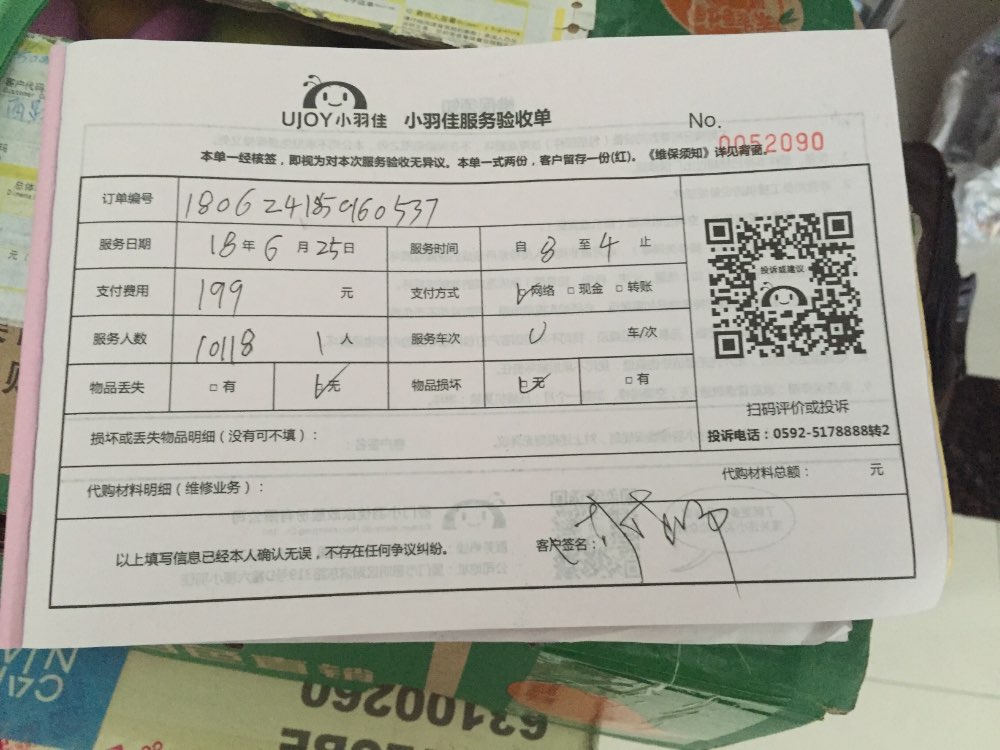 UJOY小羽佳 小羽佳服务验收单 No.
0052090
本单一经核签，即视为对本次服务验收无异议。本单一式两份，客户留存一份(红)。《维保须知》详见背面。
订单编号 180624185960537
服务日期 18年6月25日 服务时间 自8至4止
支付费用 199 元 支付方式 网络 现金 转账
服务人数 10118 1人 服务车次 0 车/次
物品丢失 有 无 物品损坏 无 有
投诉或建议
扫码评价或投诉
投诉电话：0592-5178888转2
损坏或丢失物品明细（没有可不填）：
代购材料明细（维修业务）： 代购材料总额： 元
以上填写信息已经本人确认无误，不存在任何争议纠纷。 客户签名：
客户代码
63100260